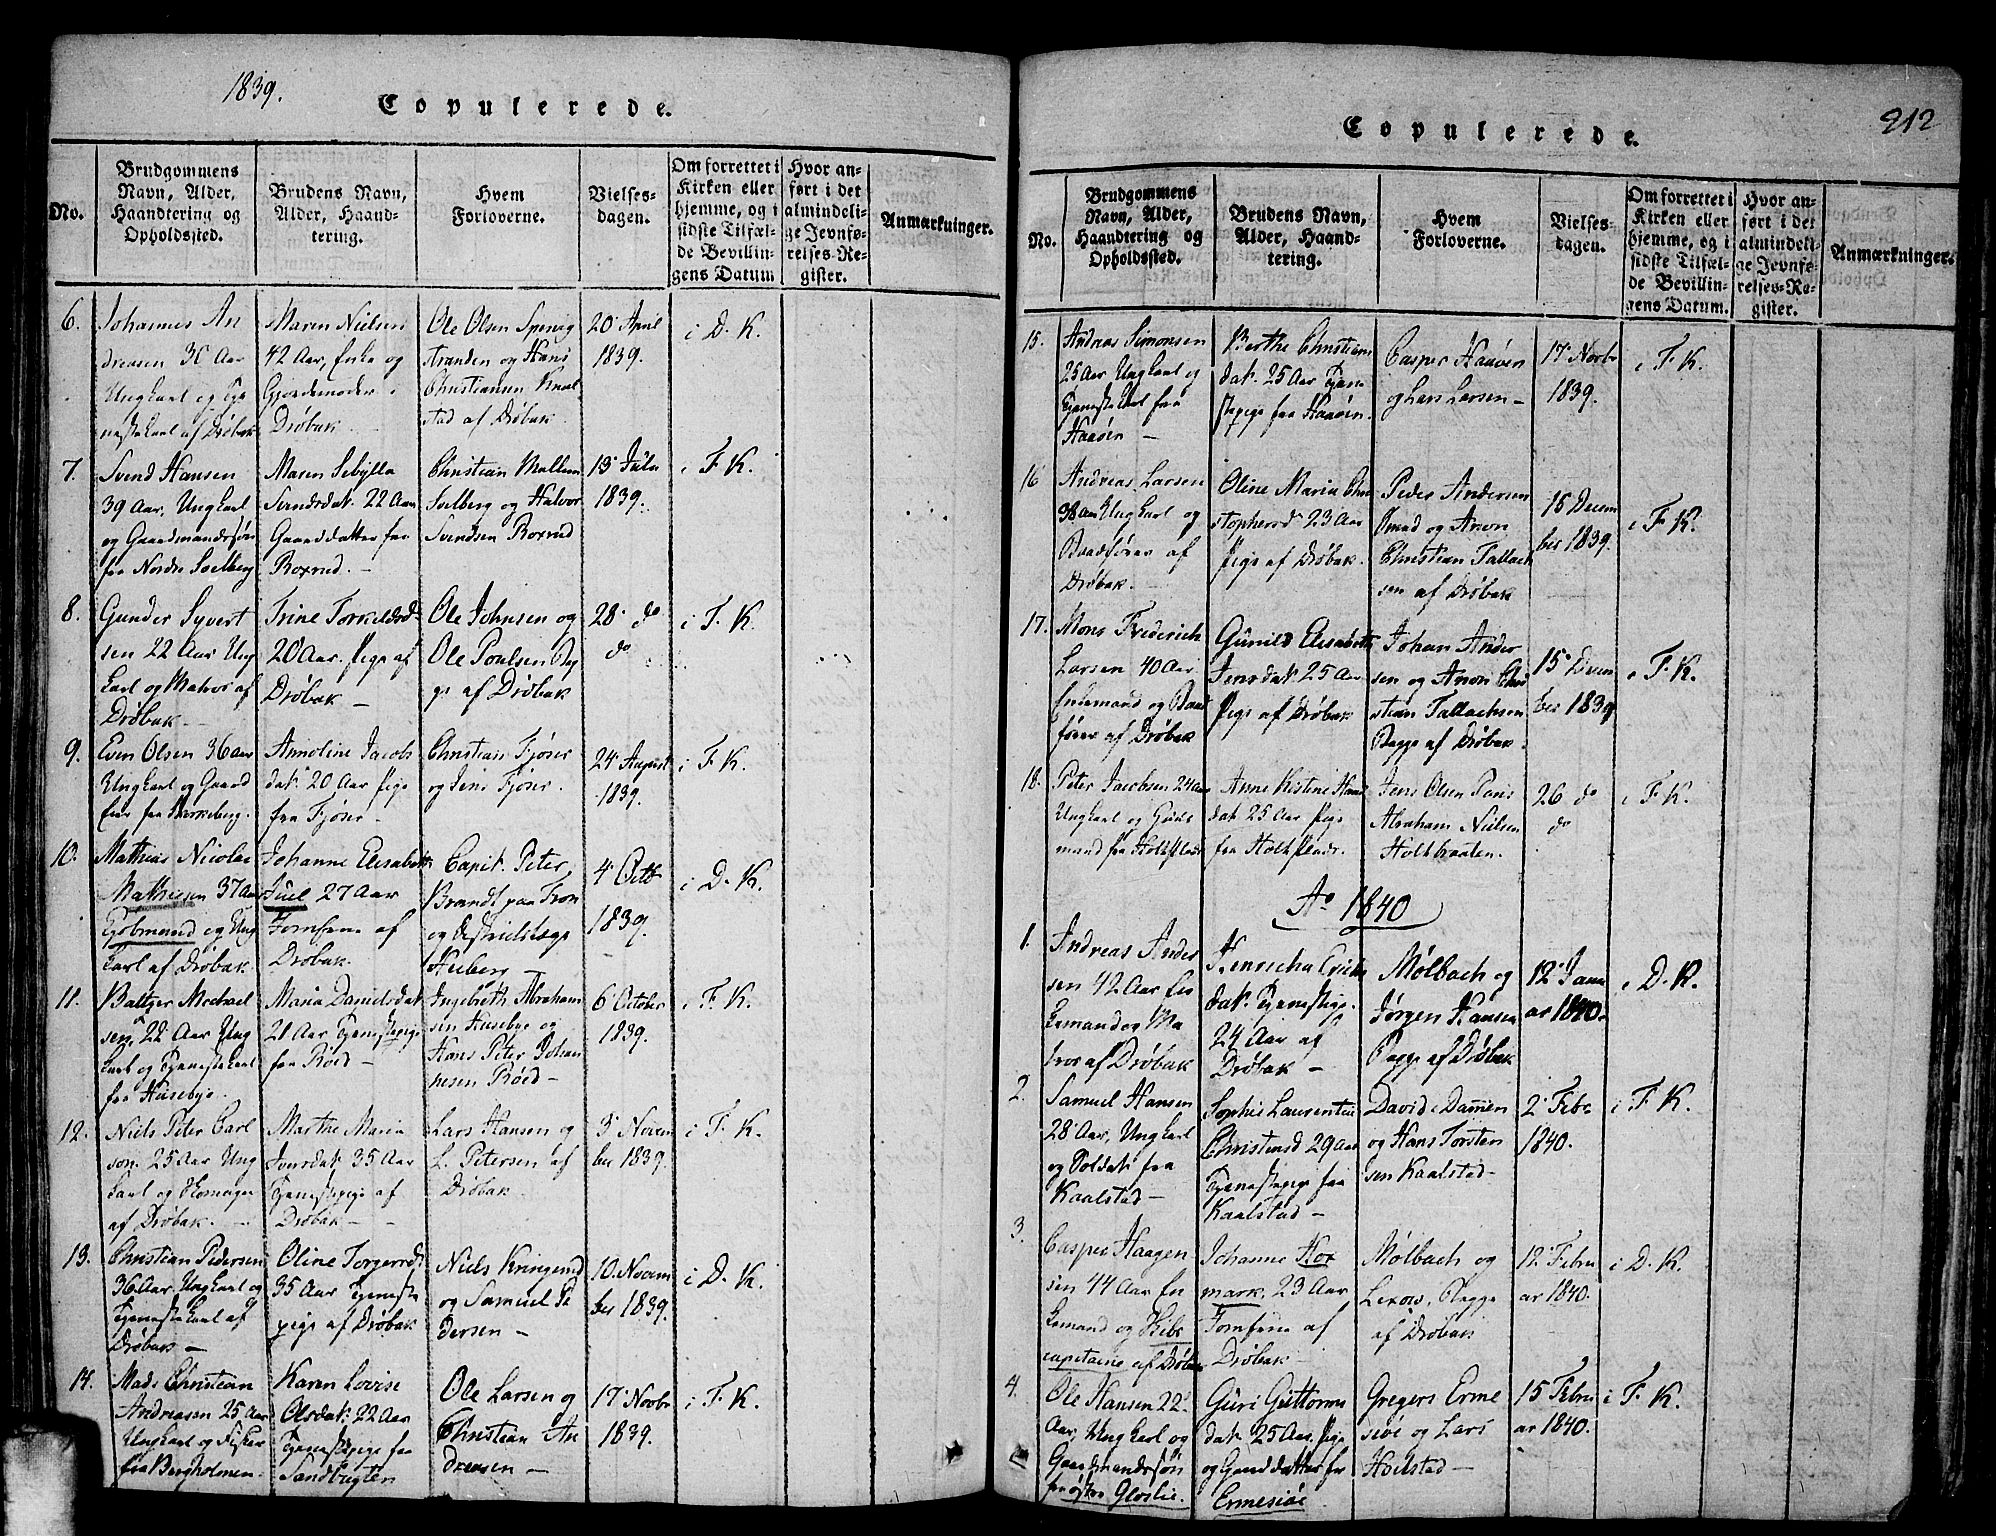 1839.
Copulerede.
No.
Brudgommens
Navn, Alder,
Haandtering og
Opholdssted.
Brudens Navn,
Alder, Haand-
tering.
Hvem
Forloverne.
Vielses-
dagen.
Om forrettet i
Kirken eller
hjemme, og i
sidste Tilfæl-
de Bevillin-
gens Datum
Hvor an-
ført i det
almindeli-
ge Jevnfø-
relses-Re-
gister.
Anmærkninger.
6.
Johannes An
dreasen 30 Aar
Ungkarl og Tje
nestekarl af Drøbak
Maren Nielsen
42 Aar, Enke og
Gjordemoder i
Drøbak
Ole Olsen
stranden og Hans
Christiansen
stad af Drøbak
20 April
1839.
i D. K.
7.
Svend Hansen
39 Aar, Ungkarl
og Gaardmandssøn
fra Nordre Solberg
Maren Sibylla
Svendsdat. 22 Aar
Gaarddatter fra
Roxrud. –
Christian
Solberg og Halvor
Svendsen Roxrud
13 Julii
1839.
i F. K.
8.
Gunder Syvert
sen 22 Aar Ung
karl og Matros af
Drøbak. –
Trine Torkeldsd
20 Aar, Pige af
Drøbak –
Ole Johnsen og
Ole Poulsen Byg
ge af Drøbak
28. do
do
i F. K.
9.
Even Olsen 36 Aar
Ungkarl og Gaard
eier fra
Annoline Jacobs
dat. 20 Aar Pige
fra Fjøser –
Christian Fjøser
og Jens Fjøser.
24 August
1839.
i F. K.
10.
Mathias Nicolai
Mathiesen 37 Aar
Kjøbmand og Ung
karl af Drøbak
Johanne Elisabeth
Juel 27 Aar
Jomfrue af
Drøbak.
Capit. Peter
Brandt paa Tron
og Distriktslæge
Heiberg –
4 Octb
1839.
i D. K.
11.
Baltzer Michael
sen. 22 Aar Ung
karl og Tjenestekarl
fra Husebye.
Maria Danielsdat
21 Aar Tjenestepige
fra Røed –
Ingebreth Abraham
sen Husebye og
Hans Peter Johan
nesen Røed –
6 October
1839.
i F. K.
12.
Niels Peter Carl
son. 25 Aar Ung
karl og Skomager
af Drøbak. –
Marthe Maria
Iversdat. 35 Aar
Tjenestepige af
Drøbak –
Lars Hansen og
L. Petersen af
Drøbak.
3 Novem
ber 1839.
i F. K.
13.
Christian Pedersen
36 Aar, Ungkarl og
Tjenestekarl af
Drøbak –
Oline Torgersd
35 Aar Tjeneste
pige af Drøbak
Niels Kringerud
og Samuel Pe
dersen –
10. Novem
ber 1839.
i D. K.
14.
Mads Christian
Andreasen 25 Aar
Ungkarl og Fisker
fra Bergholmen –
Karen Lovise
Olsdat. 22 Aar
Tjenestepige fra
Sandbugten
Ole Larsen og
Christian An
dreasen –
17 Novbr
1839.
i F. K.
Copulerede.
212
No.
Brudgommens
Navn, Alder,
Haandtering og
Opholdssted.
Brudens Navn,
Alder, Haand-
tering.
Hvem
Forloverne.
Vielses-
dagen.
Om forrettet i
Kirken eller
hjemme, og i
sidste Tilfæl-
de Bevillin-
gens Datum.
Hvor an-
ført i det
almindeli-
ge Jevnfø-
relses-Re-
gister.
Anmærkninger.
15.
Andreas Simonsen
25 Aar Ungkarl og
Tjenestekarl fra
Haaøen –
Berthe Christians
dat. 25 Aar Tjene
stepige fra Haaøen.
Casper Haaøen
og Lars Larsen –
17 Novbr
1839.
i F. K.
16
Andreas Larsen
38 Aar Ungkarl og
Baadfører af
Drøbak.
Oline Maria Chri
stophersd 23 Aar
Pige af Drøbak.
Peder Andersen
og Aron
Christian Tallach
sen af Drøbak
15 Decem
ber 1839.
i F. K.
17.
Mons Frederich
Larsen 40 Aar
Enkemand og Baad
fører af Drøbak
Gunild Elisabeth
Jensdat. 25 Aar
Pige af Drøbak
Johan Ander
sen og Aron Chri
stian Tallachsen
Begge af Drøbak.
15 Decem
ber 1839
i F. K.
18.
Peter Jacobsen 24 Aar
Ungkarl og Huus
mand fra
Anne Kistine Hans
dat 25 Aar Pige
fra
Jens Olsen
Abraham Nielsen
Holtbraaten.
26 do
do
i F. K.
Ao 1840
1.
Andreas Ander
sen 42 Aar En
kemand og Ma
tros af Drøbak
dat. Tjenestepige.
24 Aar af
Drøbak –
Mølbach og
Jørgen Hansen
Begge af Drøbak
12. Janu
ar 1840.
i D. K.
2.
Samuel Hansen
28 Aar, Ungkarl
og Soldat fra
Kaalstad –
Sophie Laurentine
Christensd 29 Aar
Tjenestepige fra
Kaalstad –
David Damen
og Hans Torsten
sen Kaalstad –
2. Febr
1840.
i F. K.
3.
Casper Haagen
sen 44 Aar En
kemand og Skibs
capitaine af Drøbak
Johanne Hox
mark. 23 Aar
Jomfrue af
Drøbak
Mølbach og
Lexow, Begge
af Drøbak
12. Febru
ar 1840.
i D. K.
4.
Ole Hansen 22
Aar, Ungkarl og
Gaardmandssøn
fra østre Gloslie.
Guri Guttorms
dat. 25 Aar. Pige
og Gaarddatter fra
Ermesiøe
Gregers Erme
siøe og Lars
Hoelstad –
15 Febru
ar 1840.
i F. K.